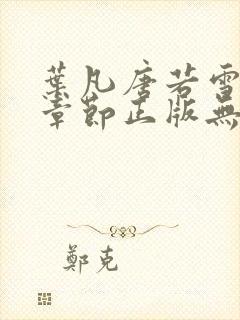 葉凡唐若雪
章節正版無
鄭克